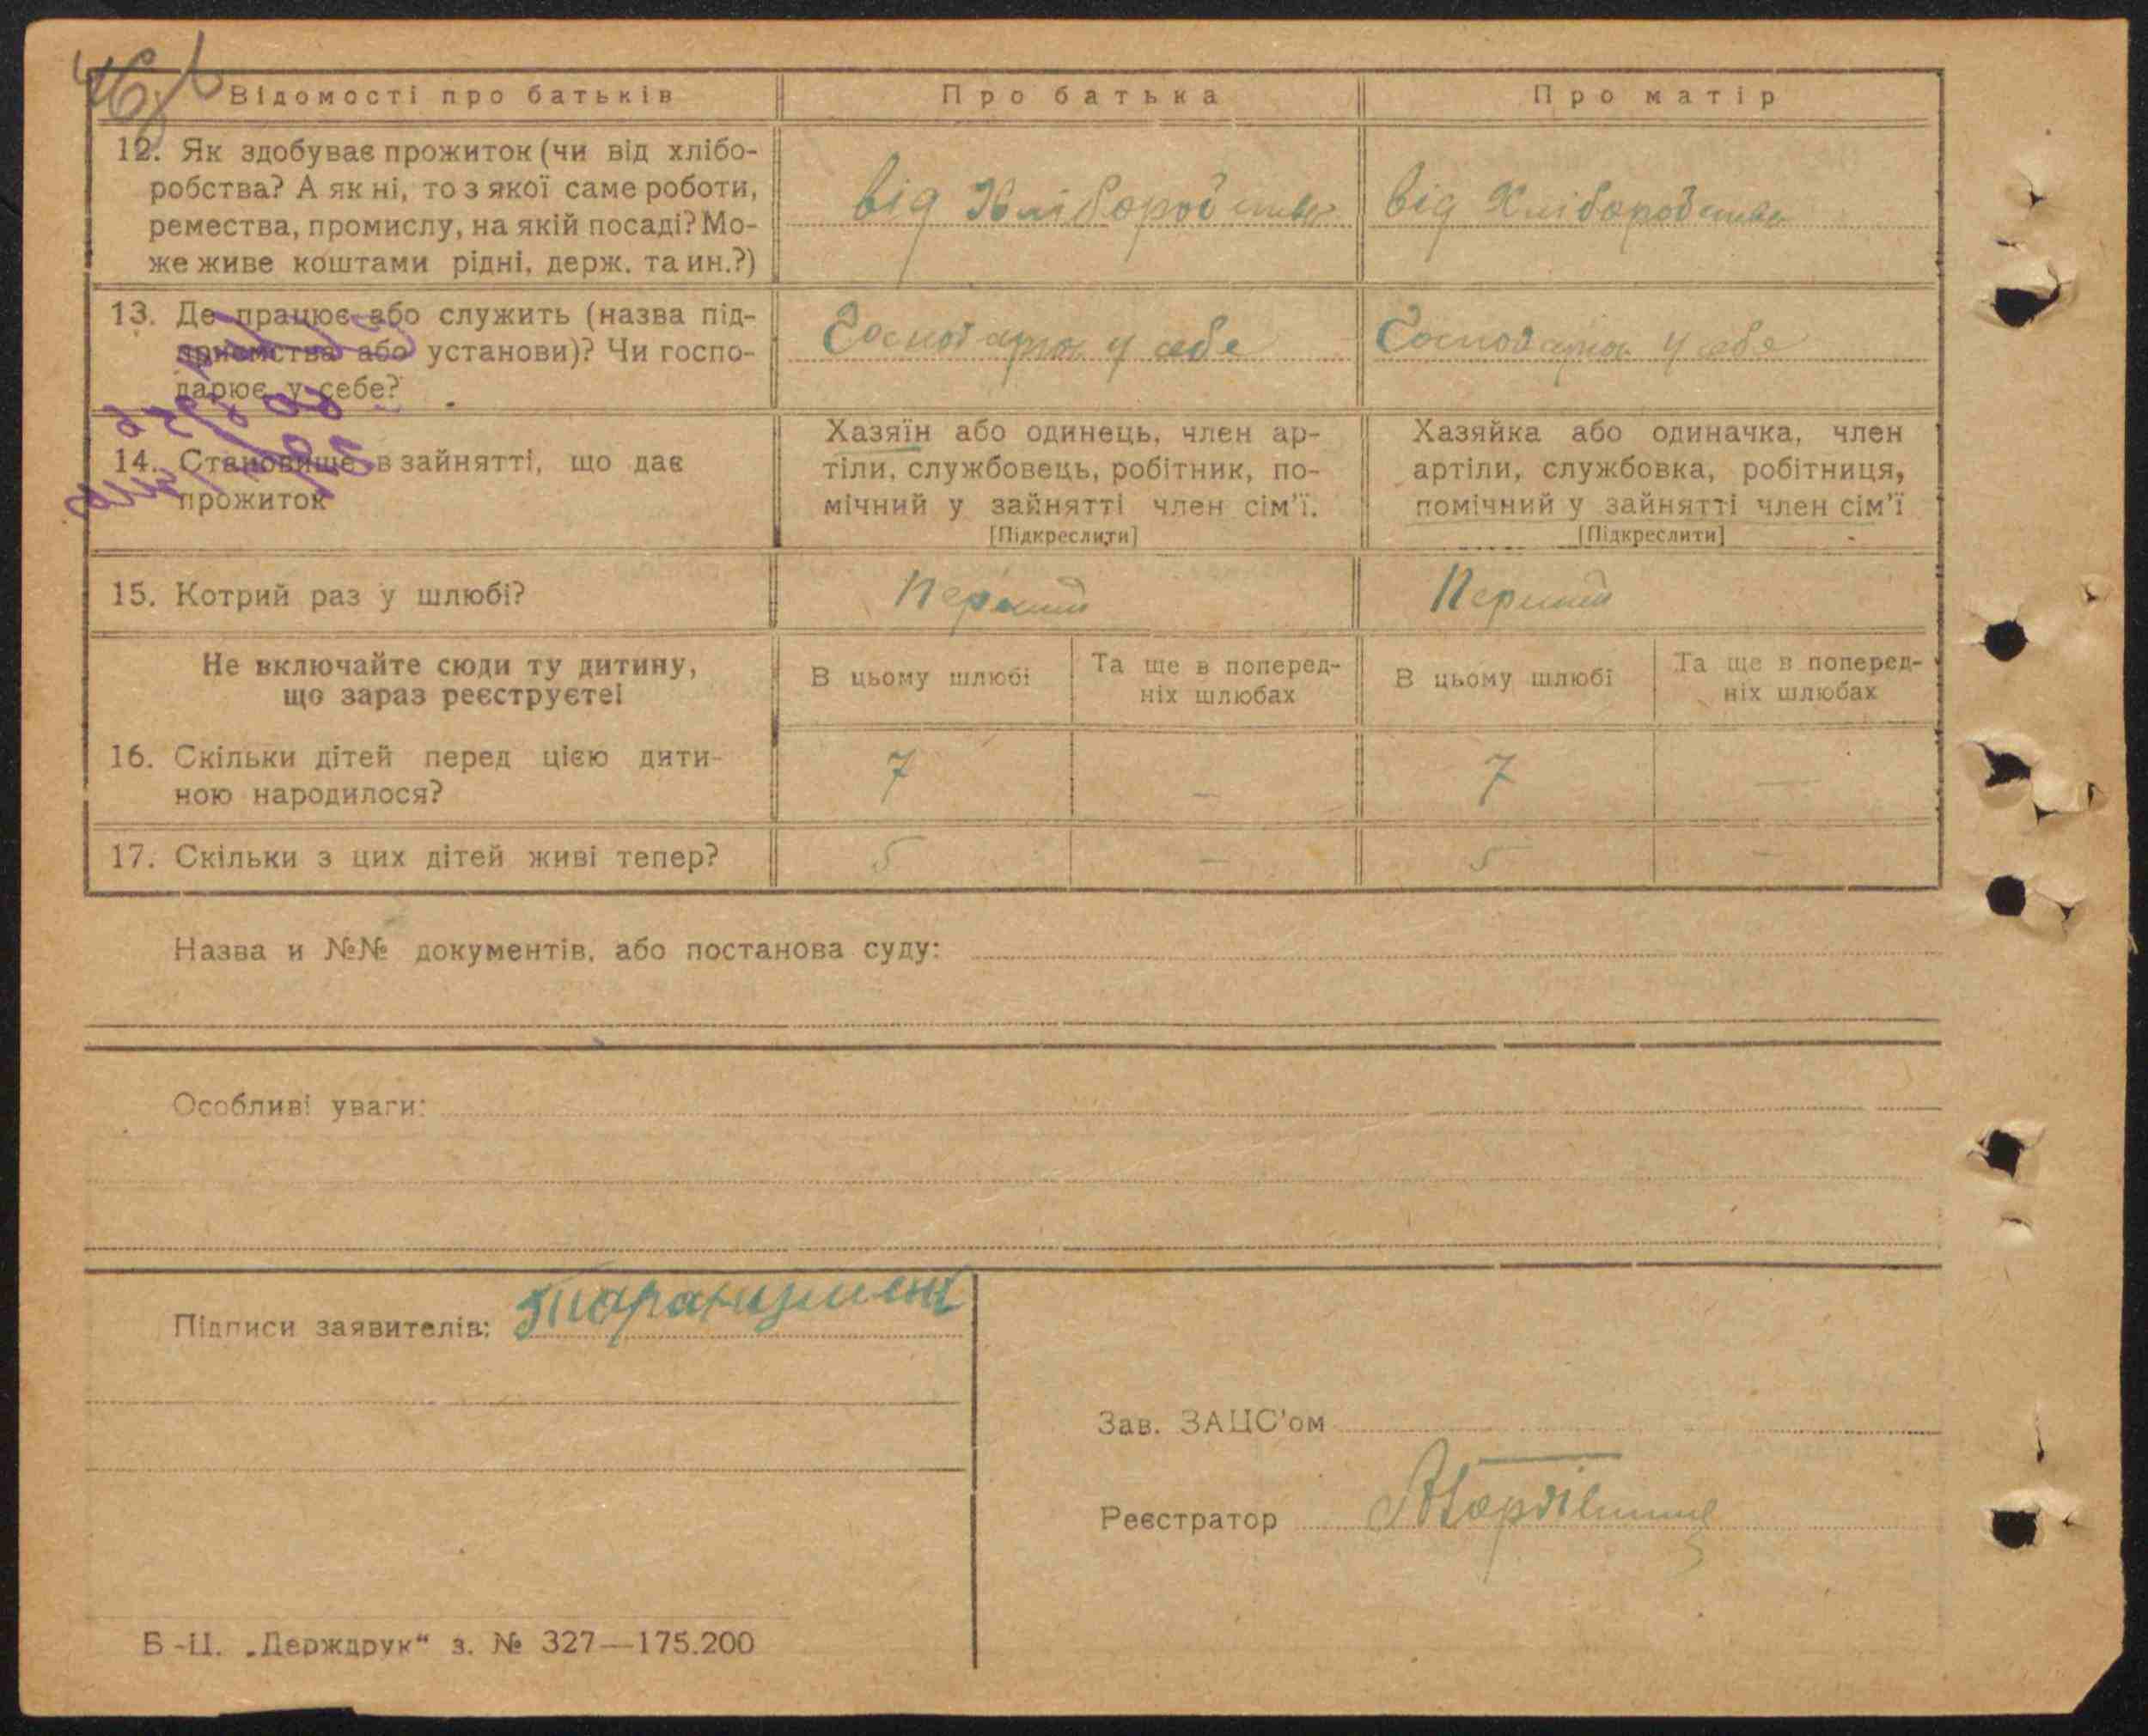 Відомості про батьків Про батька Про матір
12. Як здобуває прожиток (чи від хлібо-
робства? А як ні, то з якої саме роботи,
ремества, промислу, на якій посаді? Мо-
же живе коштами рідні, держ. та ин.?)
від Хліборобства від Хліборобства
13. Де працює або служить (назва під-
приємства або установи)? Чи госпо-
дарює у себе?
Господарює у себе Господарює у себе
14. Становище в зайнятті, що дає
прожиток
Хазяїн або одинець, член ар-
тіли, службовець, робітник, по-
мічний у зайнятті член сім'ї.
[Підкреслити]
Хазяйка або одиначка, член
артіли, службовка, робітниця,
помічний у зайнятті член сім'ї
[Підкреслити]
15. Котрий раз у шлюбі? Перший Перший
Не включайте сюди ту дитину,
що зараз реєструєте!
В цьому шлюбі
Та ще в поперед-
ніх шлюбах
В цьому шлюбі
Та ще в поперед-
ніх шлюбах
16. Скільки дітей перед цією дити-
ною народилося?
7 — 7 —
17. Скільки з цих дітей живі тепер? 5 — 5 —
Назва и №№ документів, або постанова суду:
Особливі уваги:
Підписи заявителів:
Зав. ЗАЦС'ом
Реєстратор
Б-Ц. „Держдрук“ з. № 327—175.200